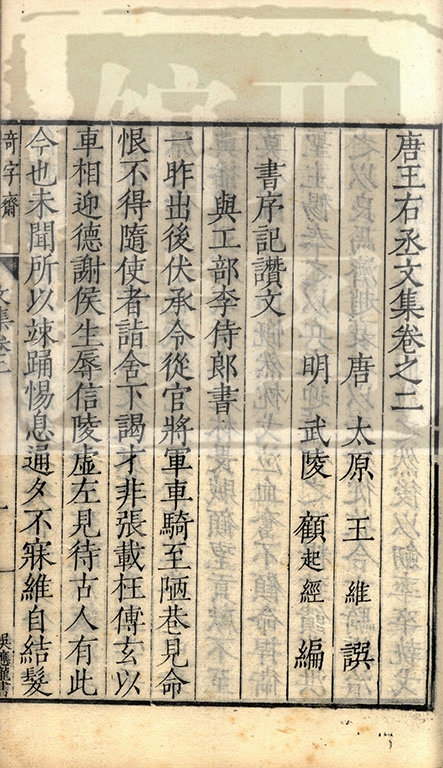 唐王右丞文集卷之二
唐 太原 王維 譔
明 武陵 顧起經 編
書序記讚文
與工部李侍郎書
一昨出後伏承令從官將軍車騎至陋巷見命
恨不得隨使者詣舍下謁才非張載枉傅玄以
車相迎德謝侯生辱信陵虛左見待古人有此
今也未聞所以竦踊惕息通夕不寐維自結髮
奇字齋
文集卷二
一